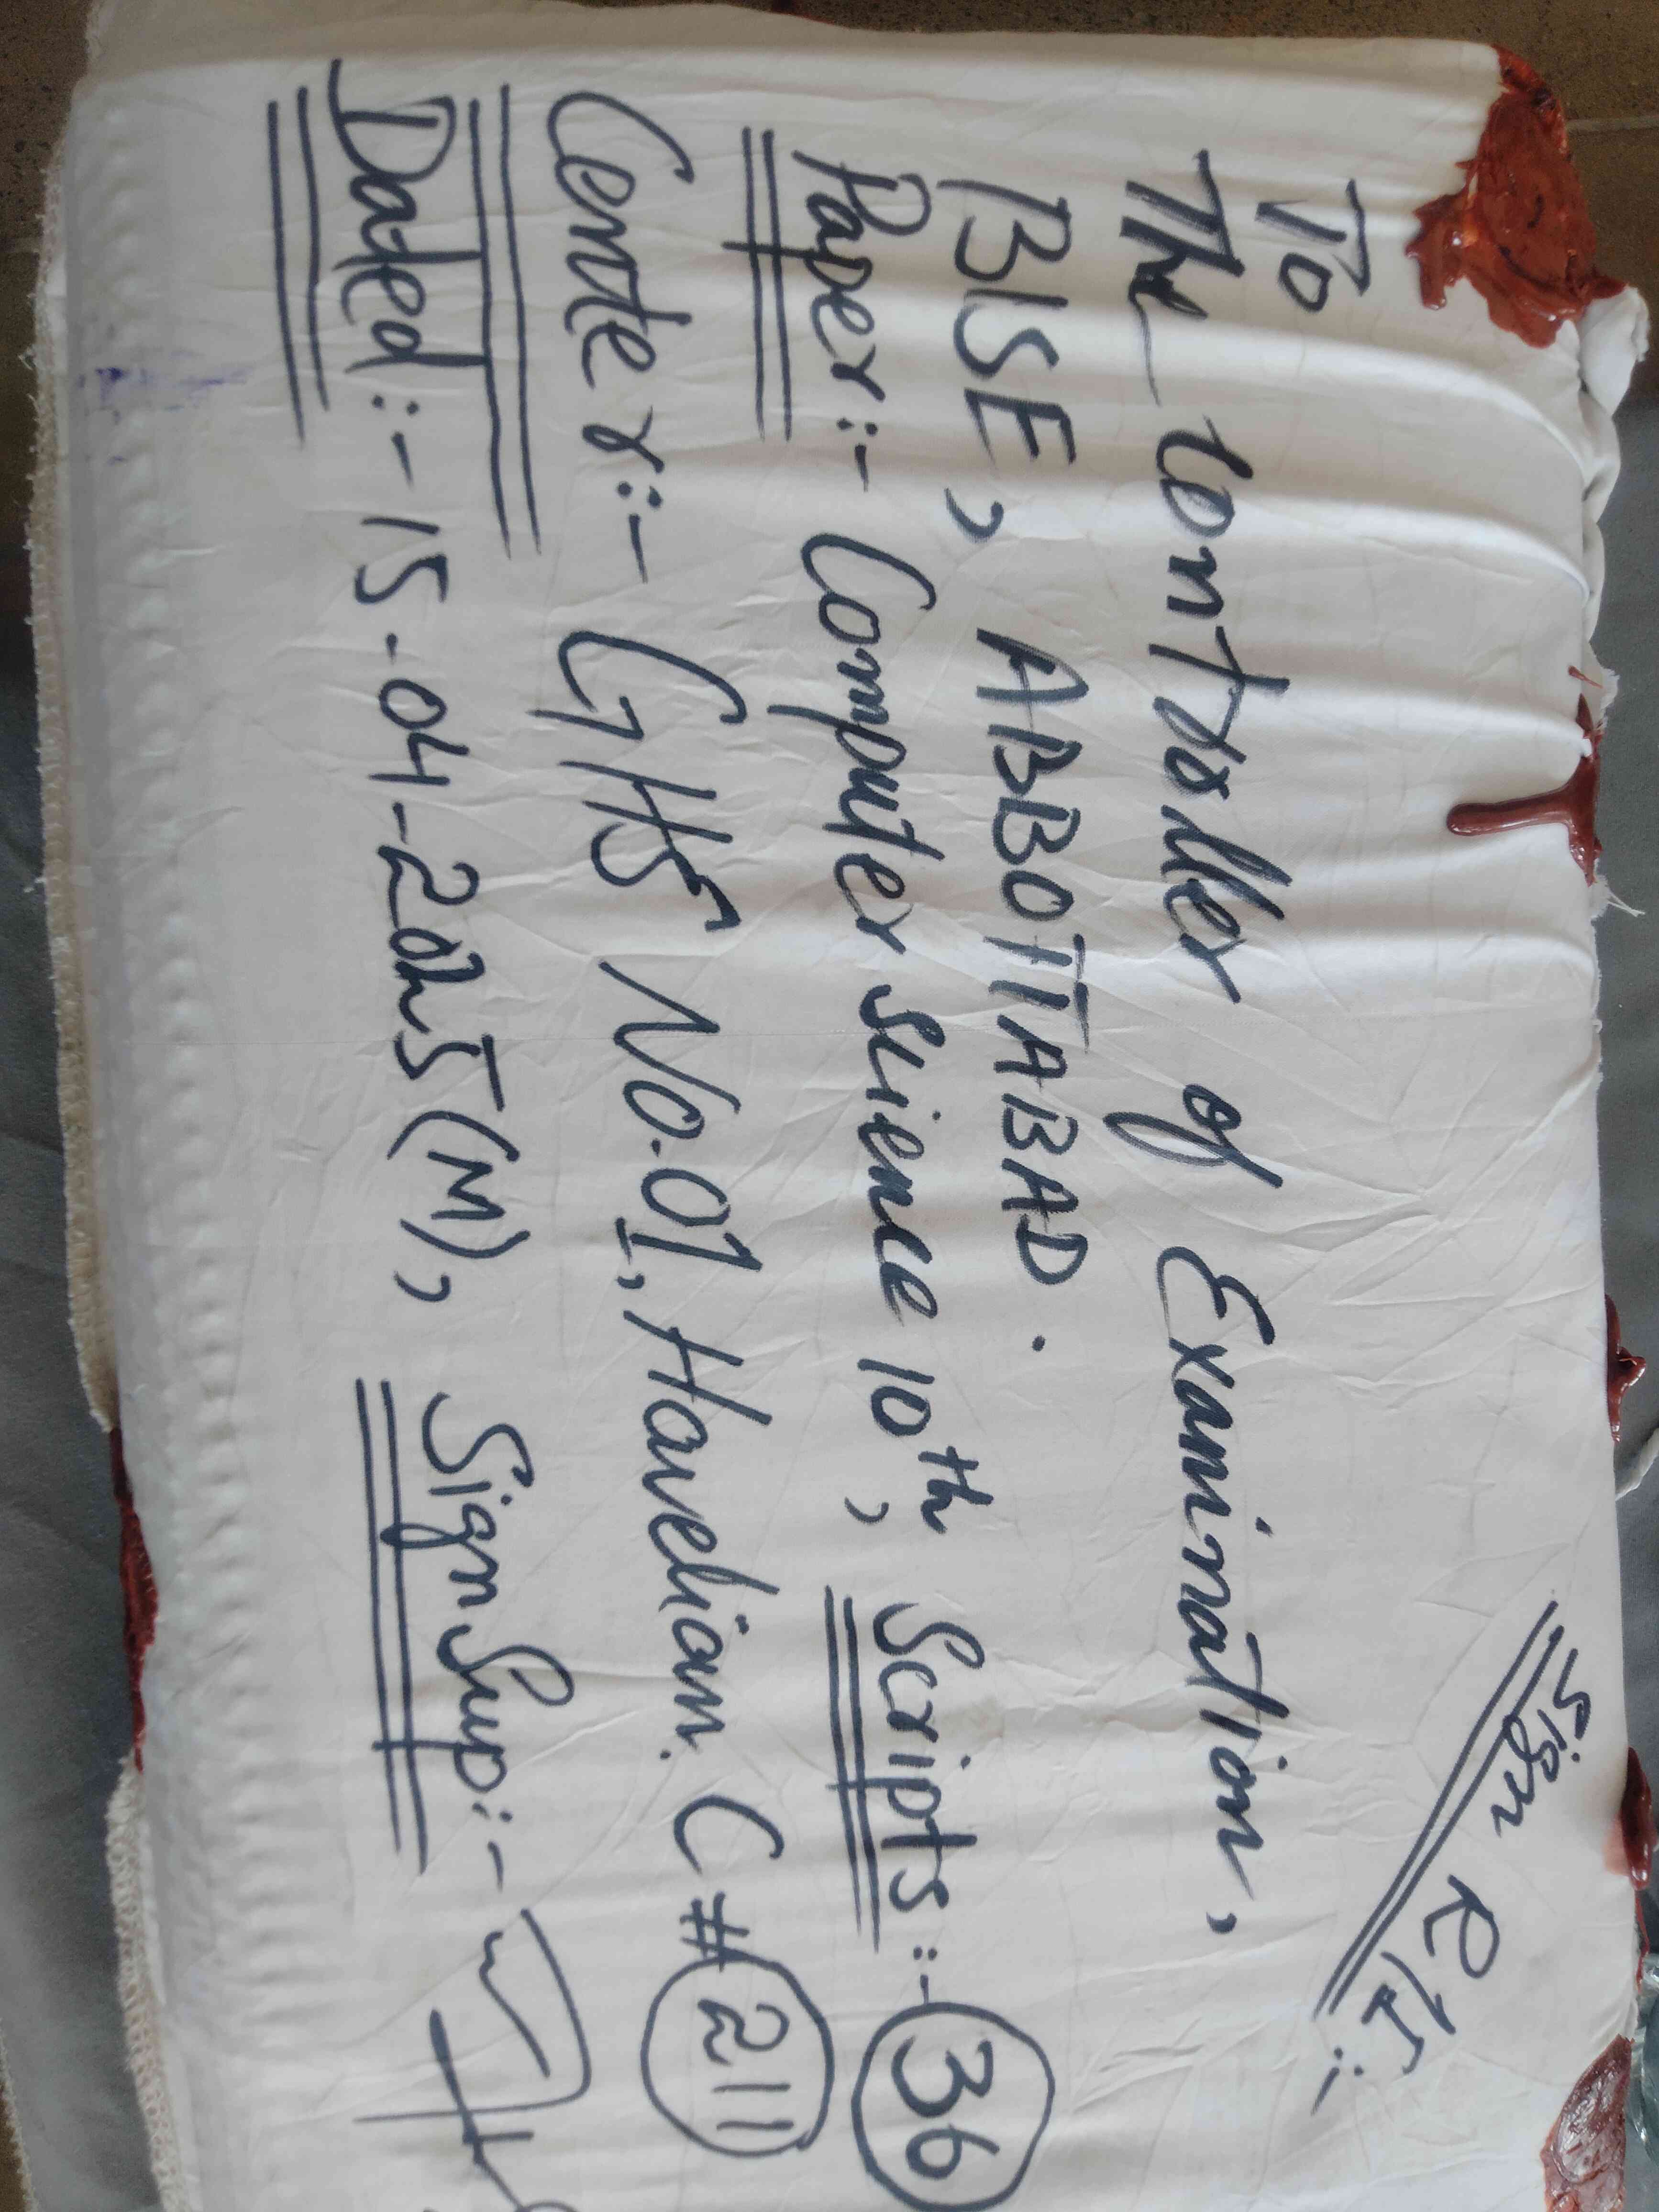 Sign R/I:-
To
The Controller of Examination,
BISE, ABBOTTABAD.
Paper:- Computer Science 10th, Scripts:- 36
Center:- GHS No.01, Havelian. C# 211
Dated:- 15-04-2025(M), Sign Sup:-